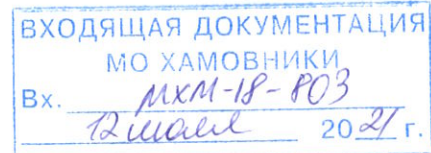 ВХОДЯЩАЯ ДОКУМЕНТАЦИЯ
МО ХАМОВНИКИ
Вх. МХМ-18-803
12 июля 2021 г.